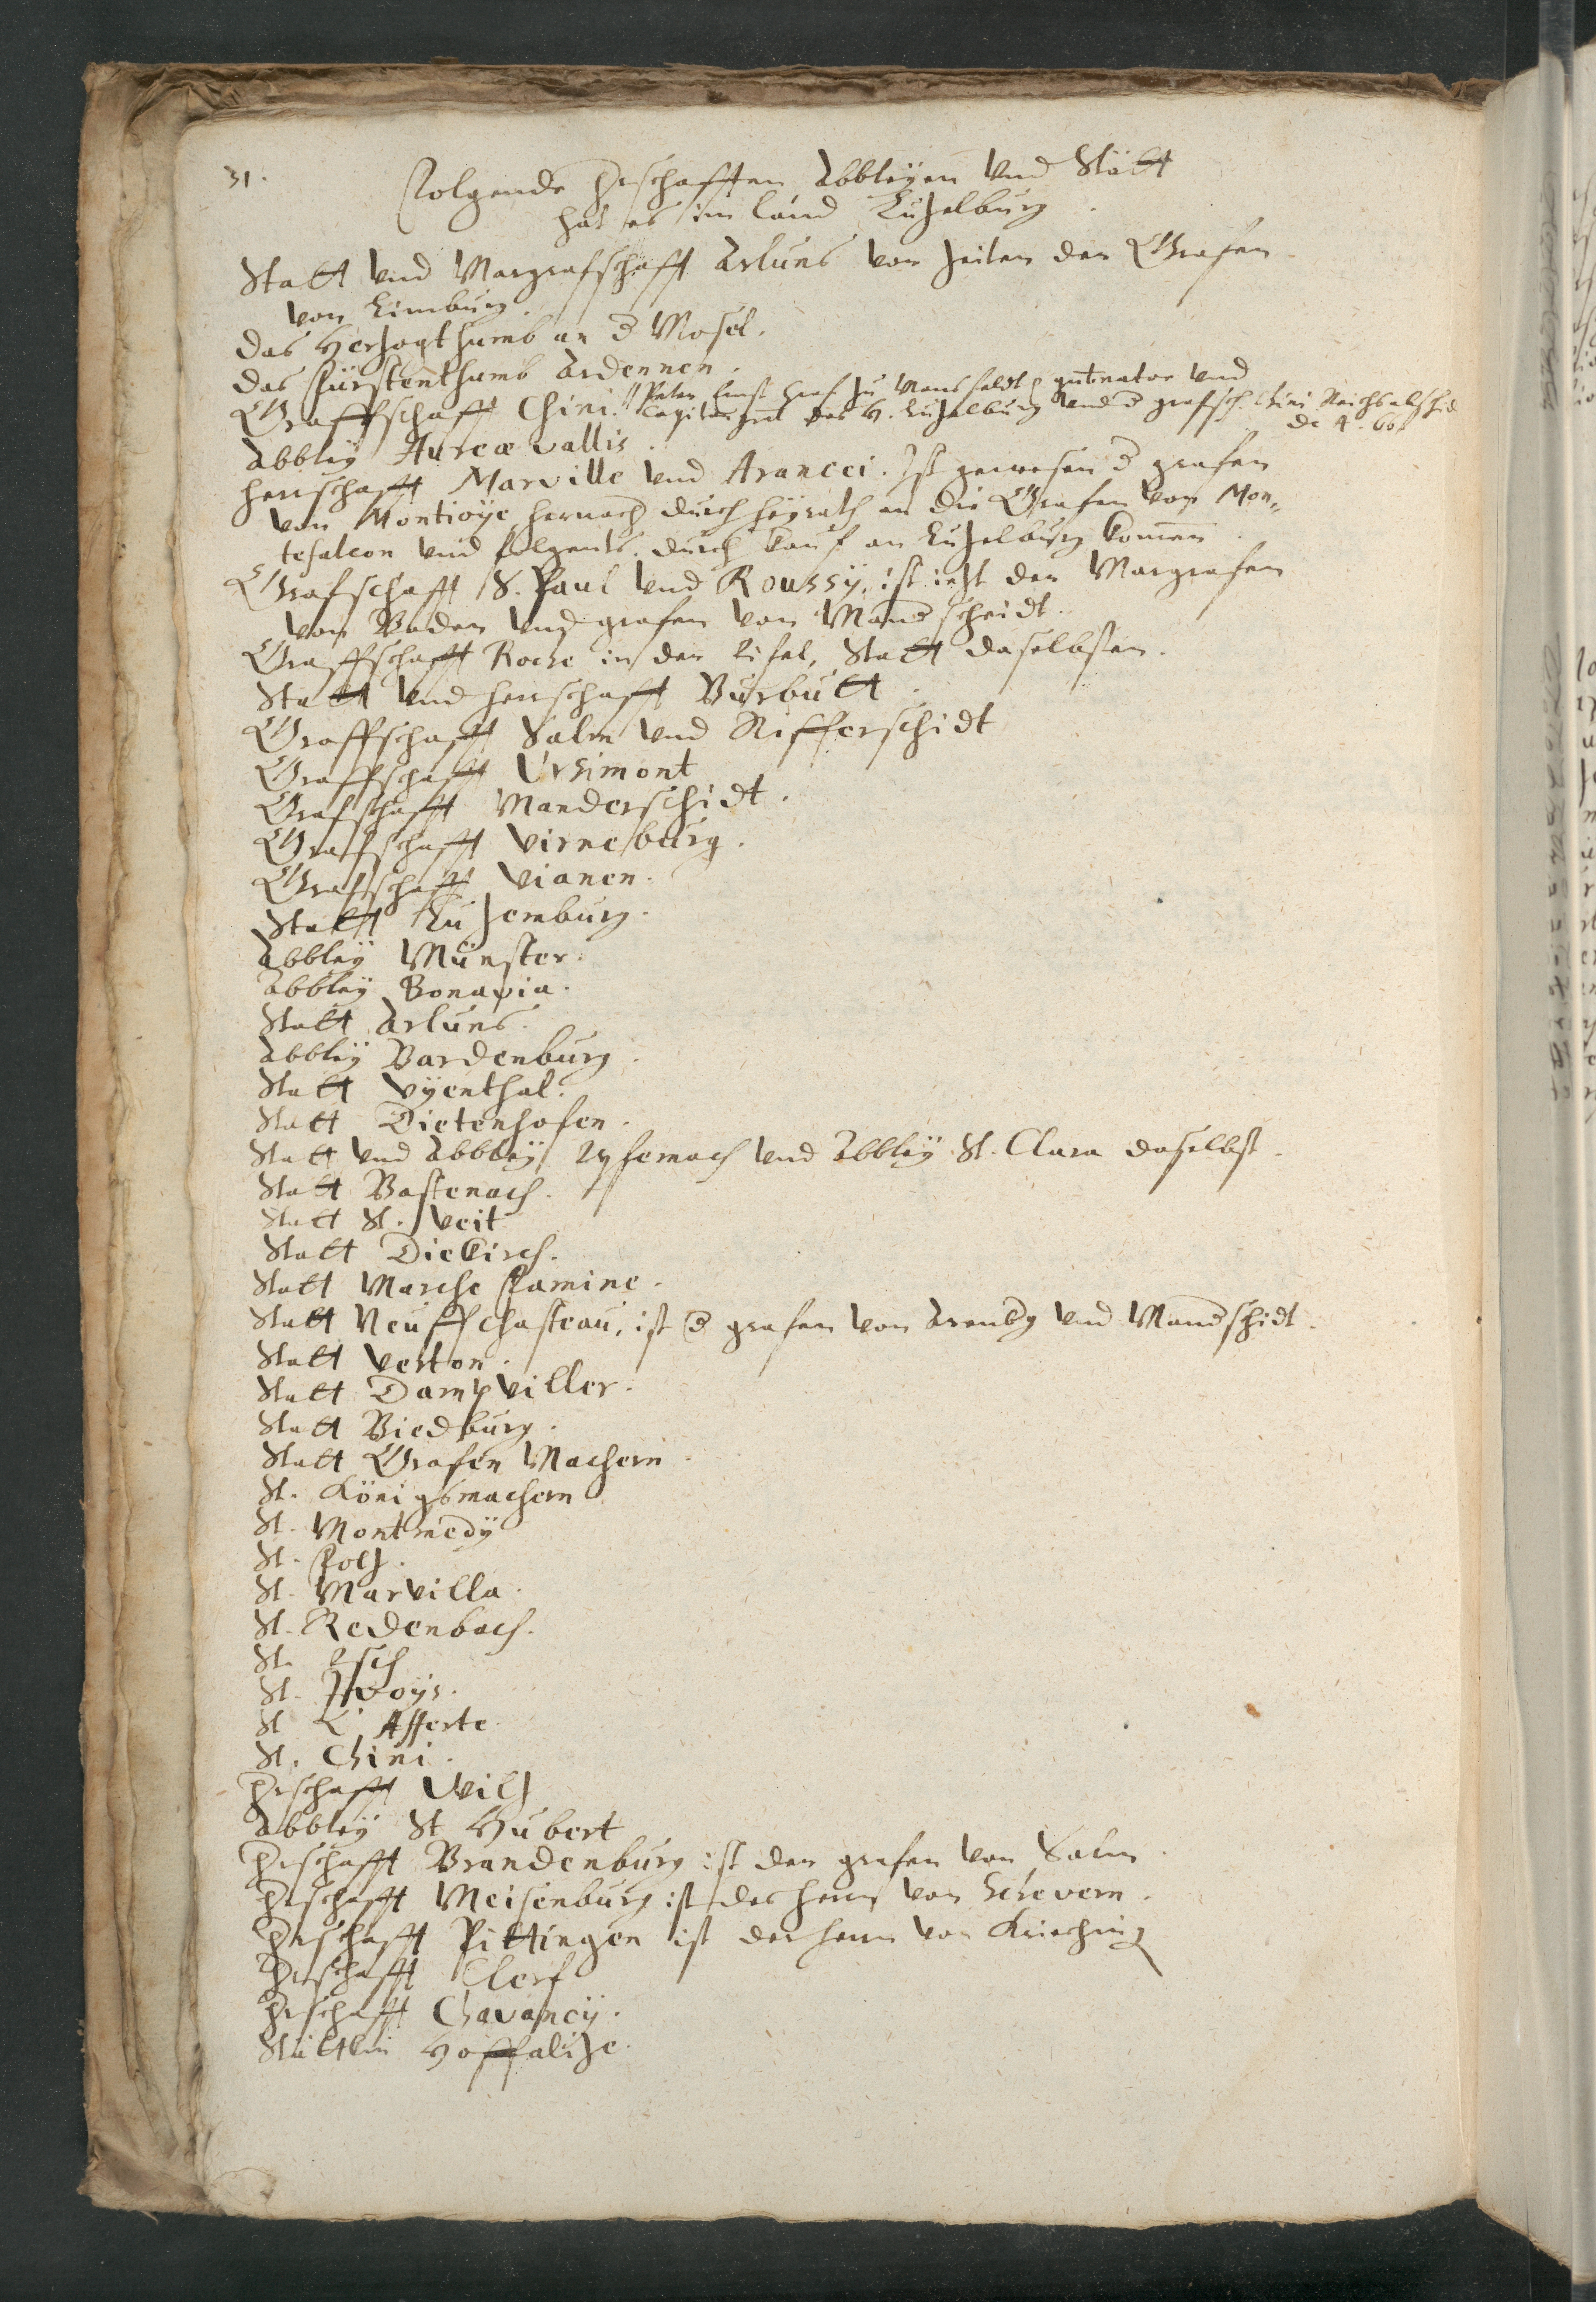 31.
Folgende Hrschafften Abbleÿen und Stätt
hat es im land Lützelburg.
Statt und Margrafschafft Arluns von zeiten der Grafen
von Limburg.
das Hertzogthumb an d Mosel.
das Fürstenthumb Ardennen.
Graffschafft Chini. // Peter Ernst Graf zu Mansfeldt gubnator und
Capitän gnl des H. Lützelburg und d grafsch. Chini Reichsabschid
de A. 60
Abbleÿ Aureæ vallis.
herrschafft Marville und Arancei. Ist gewesen d grafen
von Montioÿe hernach durch heÿrath an die Grafen von Mon-
tefalcon und folgents durch kauf an Lützelburg kommen.
Grafschafft S. Paul und Roussÿ, ist ietzt der Margrafen
von Baden und grafen von Mandscheidt.
Graffschafft Roche in der Eifel, Statt daselbsten.
Statt und herrschafft Burbutt.
Graffschafft Salm und Rifferschidt
Graffschafft Ursimont
Grafschafft Manderschidt.
Grafschafft Virneburg.
Grafschafft Vianen.
Statt Lützemburg.
Abbleÿ Münster.
Abbleÿ Bonavia.
Statt Arluns.
Abbleÿ Bardenburg.
Statt Vÿenthal.
Statt Dietenhofen.
Statt und Abbleÿ Epternach und Abbleÿ St. Clara daselbst.
Statt Bastenach.
Statt St. Veit
Statt Diekirch.
Statt Marche Famine.
Statt Neuffchasteau, ist d grafen von Arenbg und Mandschidt.
Statt Verton.
Statt Dampviller.
Statt Biedburg.
Statt Grafen Machern.
St. Königsmachern
St. Montmedÿ
St. Foltz.
St. Marvilla.
St. Redenbach.
St. Esch
St. Ivoÿs.
St L' Afferte.
St. Chini.
Hrschafft Wiltz
Abbleÿ St Hubert
Hrschafft Brandenburg ist der grafen von Salm.
Hrschafft Meisenburg ist des herrn von Echevern.
Hrschafft Pittingen ist der herrn von Kriching
Hrschafft Clerf
Hrschafft Chavancÿ.
Stättlin Hoffalize.